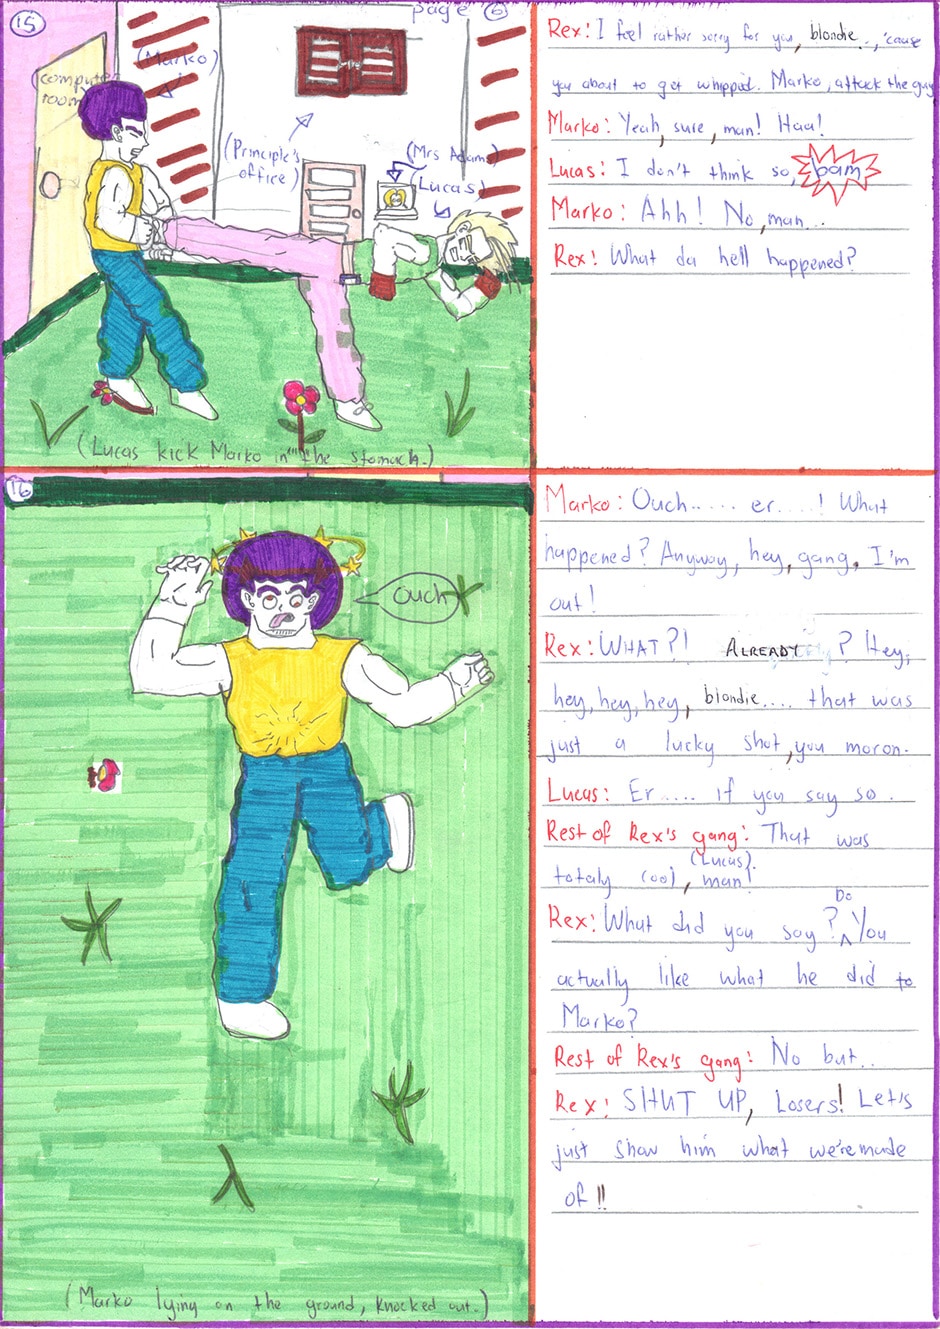 15
page 6
(Marko)
(computer
room)
(Principle's
office)
(Mrs Adams)
(Lucas)
(Lucas kick Marko in the stomach.)
Rex: I feel rather sorry for you, blondie.., 'cause
you about to get whipped. Marko, attack the guy
Marko: Yeah, sure, man! Haa!
Lucas: I don't think so, bam
Marko: Ahh! No, man...
Rex: What da hell happened?
16
Ouch
(Marko lying on the ground, knocked out.)
Marko: Ouch..... er.....! What
happened? Anyway, hey, gang, I'm
out!
Rex: WHAT?! ALREADY? Hey,
hey, hey, hey, blondie.... that was
just a lucky shot, you moron.
Lucas: Er.... if you say so.
Rest of Rex's gang: That was
totaly cool, man! (Lucas)
Rex: What did you say? Do You
actually like what he did to
Marko?
Rest of Rex's gang: No but..
Rex: SHUT UP, Losers! Let's
just show him what we're made
of!!